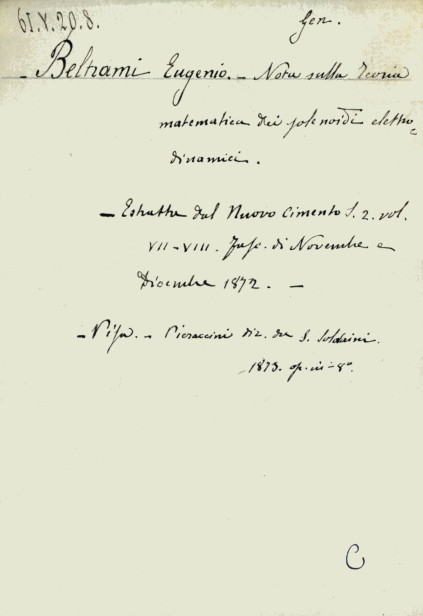 61.V.20.8.
Gen.
- Beltrami Eugenio. - Nota sulla Teoria
matematica dei solenoidi elettro-
dinamici.
- Estratta dal Nuovo Cimento S. 2. vol.
VII-VIII. Fasc. di Novembre e
Dicembre 1872. -
- Pisa. - Pieraccini dir. da S. Soldaini.
1873. op. in-8°
C